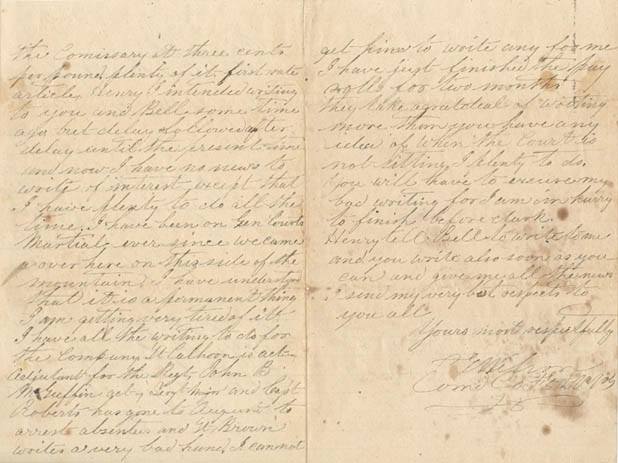 the Comissary at three cents
per pound plenty of it first rate
article Henry I intended writing
to you and Bell some time
ago but delay followed after
delay until the present time
and now I have no news to
write of interest except that
I have plenty to do all the
time. I have been on Gen Courts
Martial ever since we came
over here on this side of the
mountain I have understood
that it is a permanent thing
I am getting very tired of itt
I have all the writing to do for
the Company Lt Calhoon is act
Adjutant for the Regt John B
McGuffin act Sergt Major and Capt
Roberts has gone to Augusta to
arrest absentes and Lt Brown
writes a very bad hand I cannot
get him to write any for me
I have just finished the pay
rolls for two months
they take a great deal of writing
more than you have any
idea of When the Court is
not sitting I plenty to do
you will have to excuse my
bad writing for I am in hurry
to finish before dark
Henry tell Bell to write to me
and you write also soon as you
can and give me all the news
I send my very best respects to
you all
Yours most respectfully
Comd Co